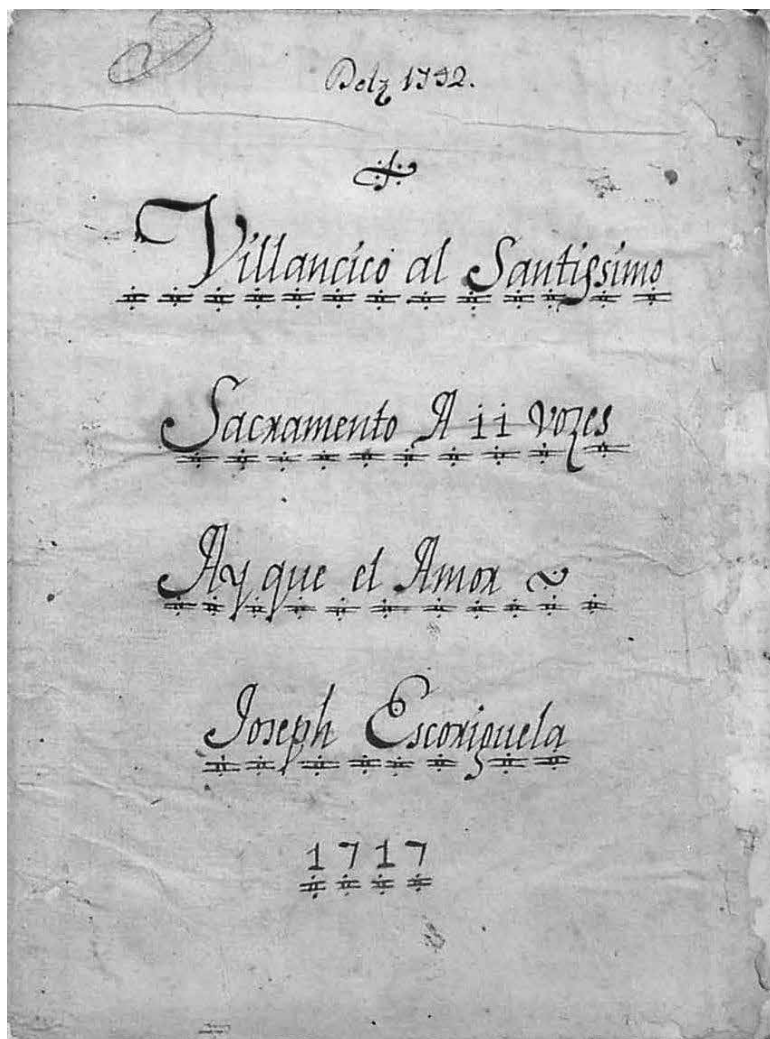 1732.
Villancico al Santissimo
Sacramento A 11 vozes
Ay que el Amor
Joseph Escorihuela
1717